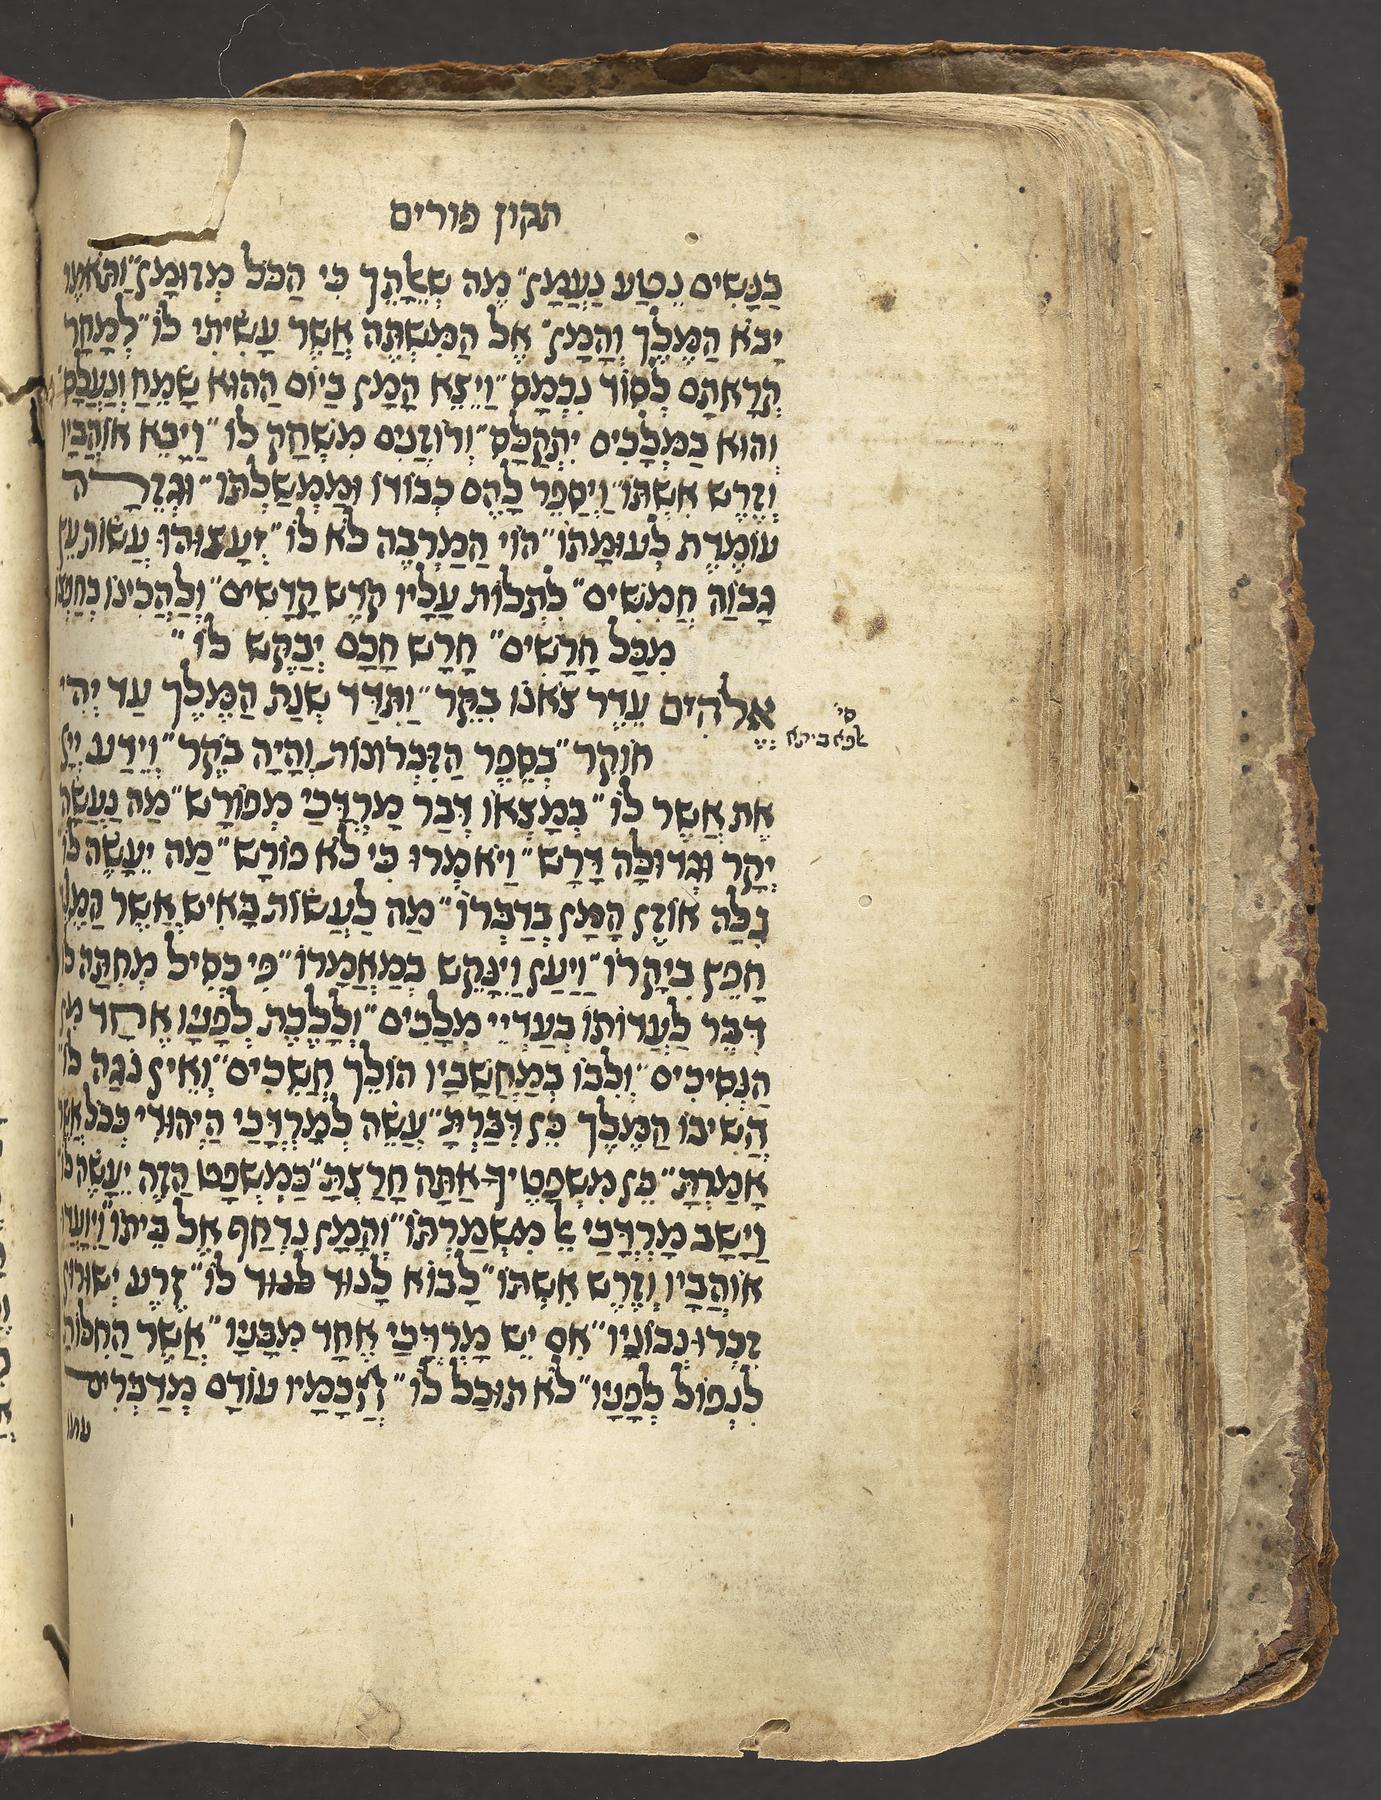 תקון פורים
בַּנָּשִׁים נֵטַע נַעֲמָן״ מַה שְּׁאֵלָתֵךְ כִּי הַכֹּל מְזוּמָּן״ וַתֹּאמֶר
יָבֹא הַמֶּלֶךְ וְהָמָן״ אֶל הַמִּשְׁתֶּה אֲשֶׁר עָשִׂיתִי לוֹ״ לְמָחָר
קְרָאתָם לָסוּר נִכְמָס״ וַיֵּצֵא הָמָן בַּיּוֹם הַהוּא שָׂמֵחַ וְנֶעֱלָס״
וְהוּא בַּמְּלָכִים יִתְקַלָּס״ וְרוֹזְנִים מִשְׂחָק לוֹ״ וַיָּבֵא אוֹהֲבָיו
וְזֶרֶשׁ אִשְׁתּוֹ״ וַיְסַפֵּר לָהֶם כְּבוֹדוֹ וּמֶמְשַׁלְתּוֹ״ וּגְזֵרָה
עוֹמֶדֶת לְעוּמָתוֹ״ הוֹי הַמַּרְבֶּה לֹּא לוֹ״ יְעָצוּהוּ עֲשׂוֹת עֵץ
גָּבוֹהַּ חֲמִשִּׁים״ לִתְלוֹת עָלָיו קֹדֶשׁ קָדָשִׁים״ וְלַהֲכִינוֹ
מִכָּל חָרָשִׁים״ חָרָשׁ חָכָם יְבַקֶּשׁ לוֹ״
אֱלֹהִים עֵדֶר צֹאנוֹ בִקֵּר״ וַתִּדַּד שְׁנַת הַמֶּלֶךְ עַד יְהִי
סי׳
אלפא ביתא
חוֹקֵר״ בְּסֵפֶר הַזִּכְרוֹנוֹת וְהָיָה בֹקֶר״ וְיֵדַע יְיָ
אֶת אֲשֶׁר לוֹ״ בְּמָצְאוֹ דְּבַר מָרְדֳּכַי מְפוֹרָשׁ״ מַה נַּעֲשָׂה
יְקָר וּגְדוּלָּה דָּרָשׁ״ וַיֹּאמְרוּ כִּי לֹא פוֹרָשׁ״ מַה יֵּעָשֶׂה לוֹ״
גִּלָּה אוֹזֶן הָמָן בְּדַבְּרוֹ״ מַה לַּעֲשׂוֹת בָּאִישׁ אֲשֶׁר הַמֶּלֶךְ
חָפֵץ בִּיקָרוֹ״ וַיַּעַן וַיִּנָּקֵשׁ בְּמַאֲמָרוֹ״ פִּי כְסִיל מְחִתָּה לוֹ
דִּבֶּר לַעֲדוֹתוֹ בַּעֲדִיֵי מְלָכִים״ וְלָלֶכֶת לְפָנָיו אֶחָד מִן
הַנְּסִיכִים״ וְלִבּוֹ בְּמַחֲשַׁבָיו הוֹלֵךְ חֲשֵׁכִים״ וְאֵין נֹגַהּ לוֹ״
הֱשִׁיבוֹ הַמֶּלֶךְ כֵּן דִּבַּרְתָּ״ עֲשֵׂה לְמָרְדֳּכַי הַיְּהוּדִי כְּכֹל אֲשֶׁר
אָמַרְתָּ״ כֵּן מִשְׁפָּטֶיךָ אַתָּה חָרָצְתָּ״ כַּמִּשְׁפָּט הַזֶּה יֵעָשֶׂה לּוֹ״
וַיָּשָׁב מָרְדֳּכַי אֶל מִשְׁמַרְתּוֹ״ וְהָמָן נִדְחַף אֶל בֵּיתוֹ״ וַיִּוָּעֲדוּ
אוֹהֲבָיו וְזֶרֶשׁ אִשְׁתּוֹ״ לָבוֹא לָנוּד לנוד לוֹ״ זֶרַע יְשׁוּרוּן
זָכְרוּ נְבוֹנָיו״ אִם יֵשׁ מָרְדֳּכַי אֶחָד מִבָּנָיו״ אֲשֶׁר הַחִלּוֹתָ
לִנְפּוֹל לְפָנָיו״ לֹא תוּכַל לוֹ״ חֲכָמָיו עוֹדָם מְדַבְּרִים
עמו